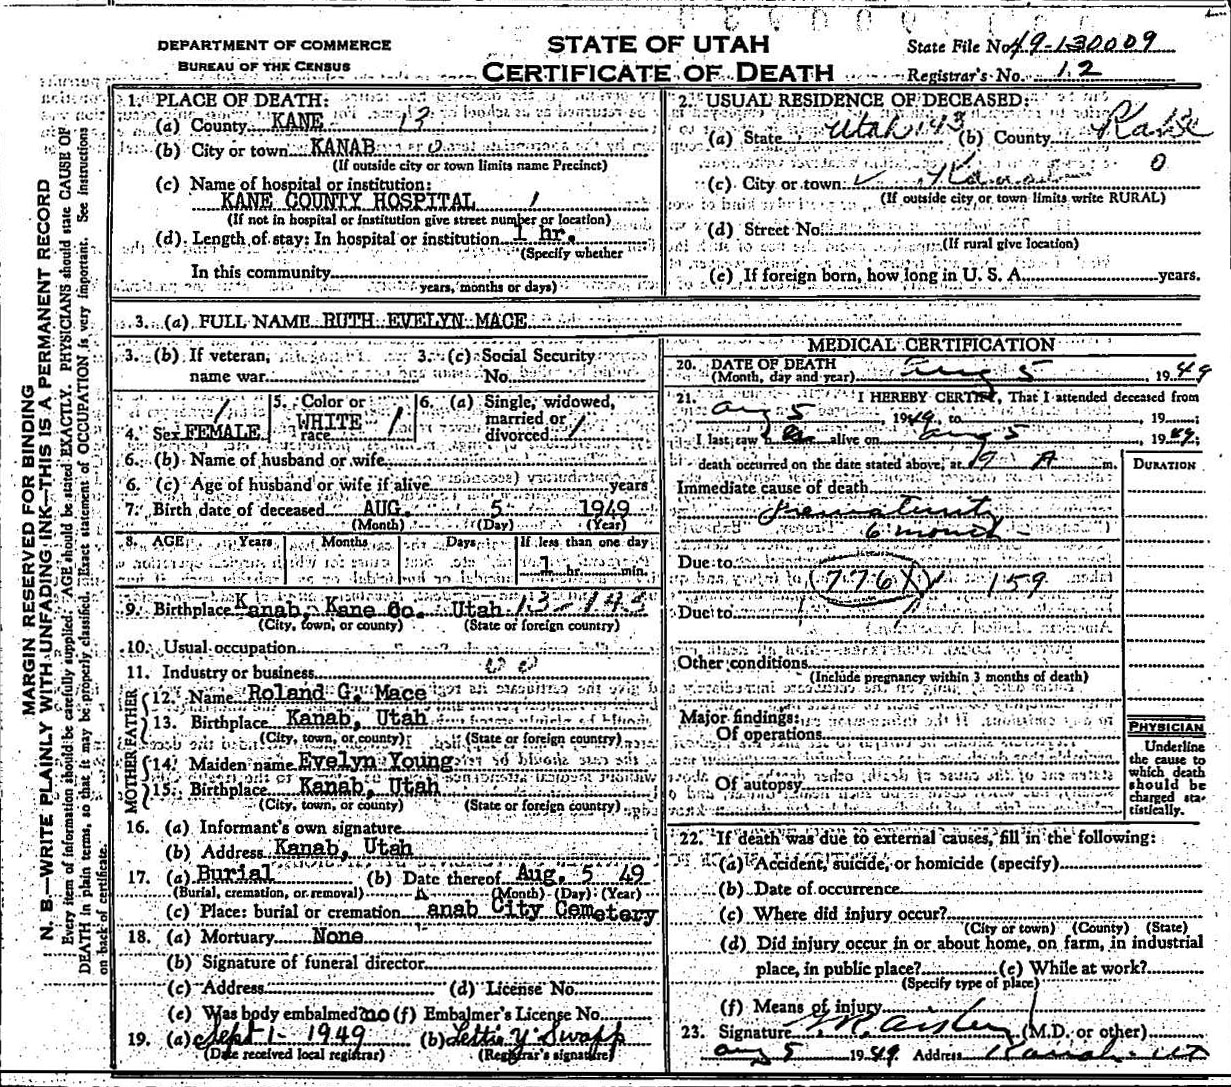 DEPARTMENT OF COMMERCE
BUREAU OF THE CENSUS
STATE OF UTAH
CERTIFICATE OF DEATH
State File No. 49-130009
Registrar's No. 12
MARGIN RESERVED FOR BINDING
N. B.—WRITE PLAINLY WITH UNFADING INK—THIS IS A PERMANENT RECORD
Every item of information should be carefully supplied. AGE should be stated EXACTLY. PHYSICIANS should state CAUSE OF
DEATH in plain terms, so that it may be properly classified. Exact statement of OCCUPATION is very important. See instructions
on back of certificate.
1. PLACE OF DEATH:
(a) County KANE 13
(b) City or town KANAB 0
(If outside city or town limits name Precinct)
(c) Name of hospital or institution:
KANE COUNTY HOSPITAL 1
(If not in hospital or institution give street number or location)
(d) Length of stay: In hospital or institution 1 hr.
(Specify whether
In this community
years, months or days)
2. USUAL RESIDENCE OF DECEASED:
(a) State Utah 143 (b) County Kane
0
(c) City or town Kanab
(If outside city or town limits write RURAL)
(d) Street No.
(If rural give location)
(e) If foreign born, how long in U. S. A. years.
3. (a) FULL NAME RUTH EVELYN MACE
3. (b) If veteran, name war
3. (c) Social Security No.
4. Sex FEMALE 1
5. Color or race WHITE 1
6. (a) Single, widowed, married or divorced 1
6. (b) Name of husband or wife
6. (c) Age of husband or wife if alive years
7. Birth date of deceased AUG. 5 1949
(Month) (Day) (Year)
8. AGE Years Months Days If less than one day
1 hr. min.
9. Birthplace Kanab, Kane Co. Utah 13-143
(City, town, or county) (State or foreign country)
10. Usual occupation
11. Industry or business
FATHER
12. Name Roland G. Mace
13. Birthplace Kanab, Utah
(City, town, or county) (State or foreign country)
MOTHER
14. Maiden name Evelyn Young
15. Birthplace Kanab, Utah
(City, town, or county) (State or foreign country)
16. (a) Informant's own signature
(b) Address Kanab, Utah
17. (a) Burial (b) Date thereof Aug. 5 49
(Burial, cremation, or removal) (Month) (Day) (Year)
(c) Place: burial or cremation Kanab City Cemetery
18. (a) Mortuary None
(b) Signature of funeral director
(c) Address (d) License No.
(e) Was body embalmed? no (f) Embalmer's License No.
19. (a) Sept 1 - 1949 (b) Lettie Y. Swapp
(Date received local registrar) (Registrar's signature)
MEDICAL CERTIFICATION
20. DATE OF DEATH
(Month, day and year) Aug 5, 1949
21. I HEREBY CERTIFY, That I attended deceased from
Aug 5, 1949 to , 19 ;
I last saw h alive on Aug 5, 1949;
death occurred on the date stated above, at 9 A m.
DURATION
Immediate cause of death
Prematurity
6 month
Due to
776X 159
Due to
Other conditions
(Include pregnancy within 3 months of death)
Major findings:
Of operations
Of autopsy
PHYSICIAN
Underline
the cause to
which death
should be
charged sta-
tistically.
22. If death was due to external causes, fill in the following:
(a) Accident, suicide, or homicide (specify)
(b) Date of occurrence
(c) Where did injury occur?
(City or town) (County) (State)
(d) Did injury occur in or about home, on farm, in industrial
place, in public place? (e) While at work?
(Specify type of place)
(f) Means of injury
23. Signature (M.D. or other)
Aug 5 1949 Address Kanab Ut